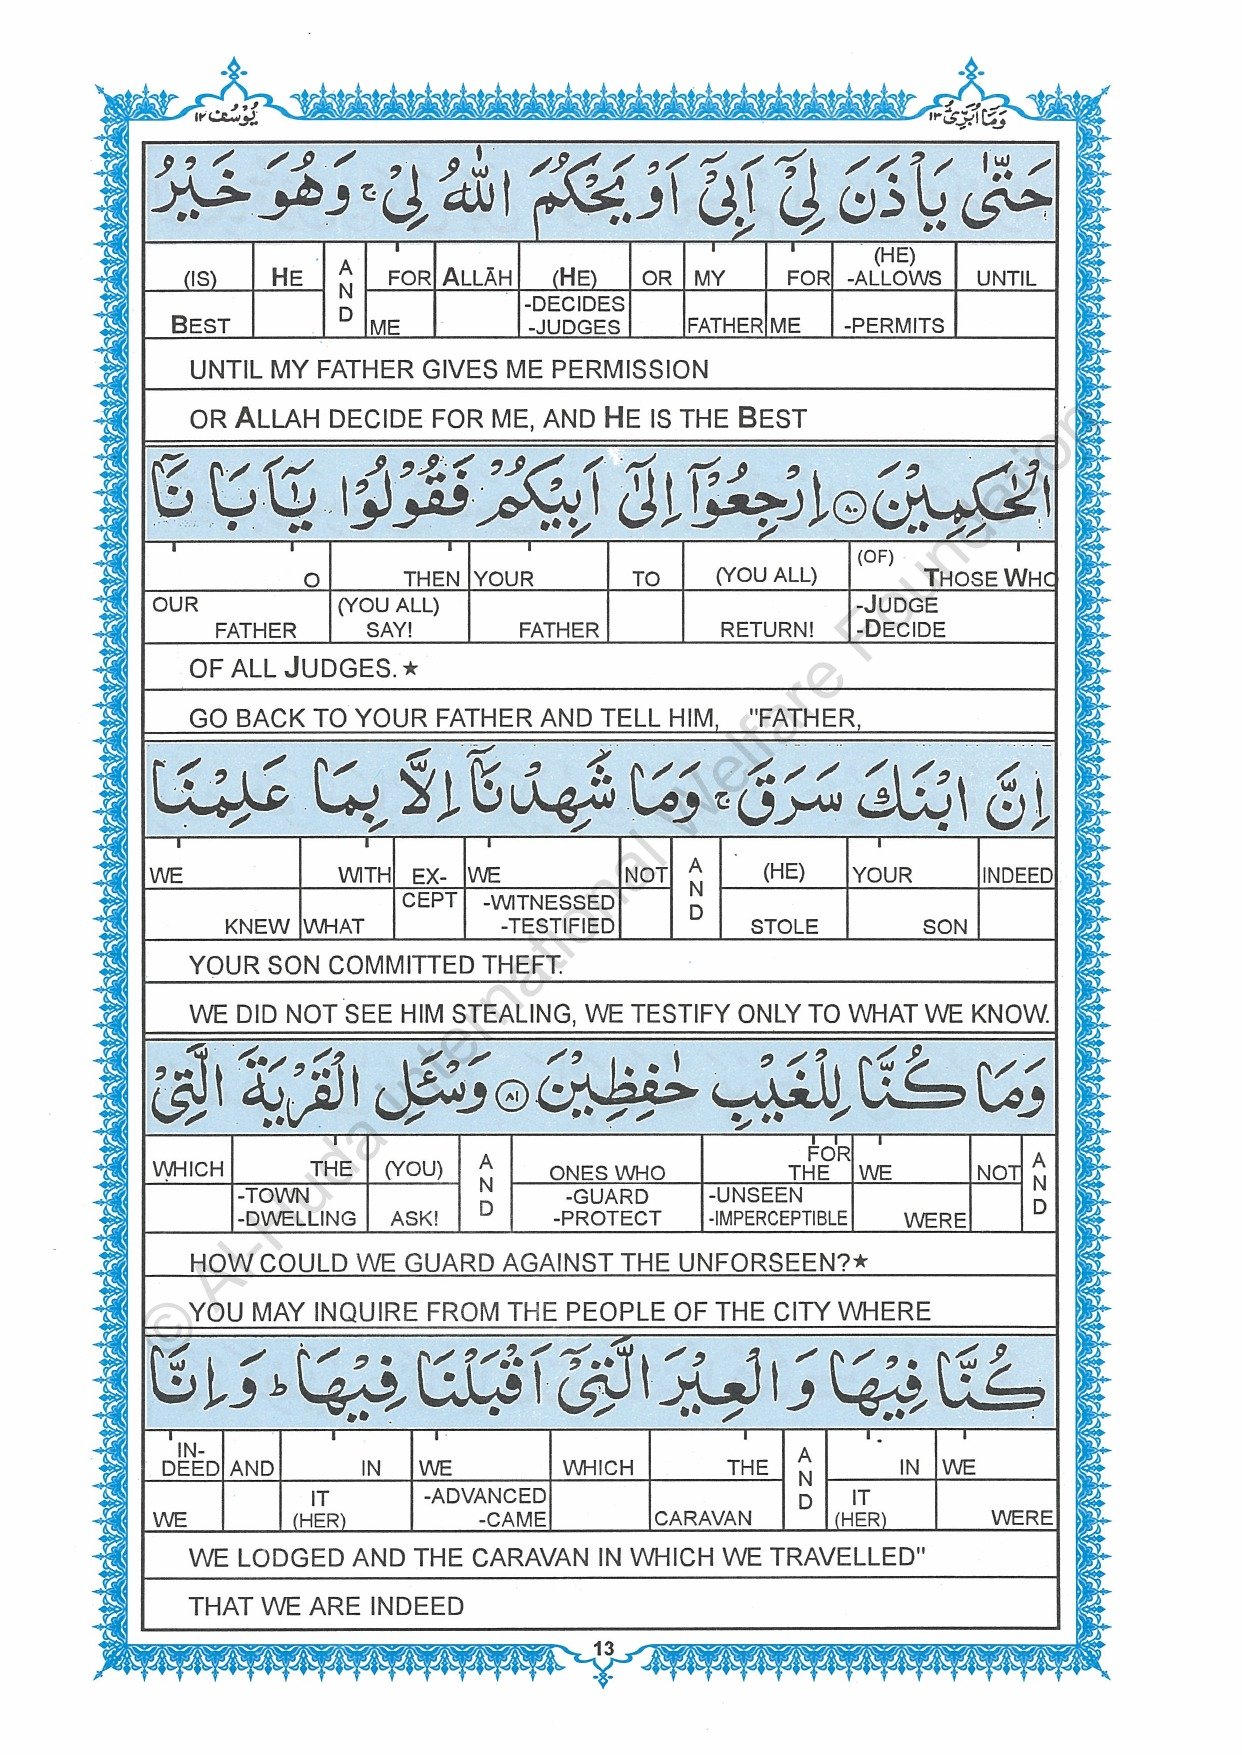 يُوْسُف ١٢
وَمَآ اُبَرِّئُ ١٣
حَتّٰى يَاْذَنَ لِيْٓ اَبِيْٓ اَوْ يَحْكُمَ اللّٰهُ لِيْ ۚ وَهُوَ خَيْرُ
(IS) HE AND FOR ALLĀH (HE) OR MY FOR (HE) -ALLOWS UNTIL
BEST ME -DECIDES -JUDGES FATHER ME -PERMITS
UNTIL MY FATHER GIVES ME PERMISSION
OR ALLAH DECIDE FOR ME, AND HE IS THE BEST
الْحٰكِمِيْنَ ۝٨٠ اِرْجِعُوْٓا اِلٰٓى اَبِيْكُمْ فَقُوْلُوْا يٰٓاَبَانَآ
O THEN YOUR TO (YOU ALL) (OF) THOSE WHO
OUR FATHER (YOU ALL) SAY! FATHER RETURN! -JUDGE -DECIDE
OF ALL JUDGES.★
GO BACK TO YOUR FATHER AND TELL HIM, "FATHER,
اِنَّ ابْنَكَ سَرَقَ ۚ وَمَا شَهِدْنَآ اِلَّا بِمَا عَلِمْنَا
WE WITH EX- WE NOT AND (HE) YOUR INDEED
KNEW WHAT CEPT -WITNESSED -TESTIFIED STOLE SON
YOUR SON COMMITTED THEFT.
WE DID NOT SEE HIM STEALING, WE TESTIFY ONLY TO WHAT WE KNOW.
وَمَا كُنَّا لِلْغَيْبِ حٰفِظِيْنَ ۝٨١ وَسْـَٔلِ الْقَرْيَةَ الَّتِيْ
WHICH THE (YOU) AND ONES WHO FOR THE WE NOT AND
-TOWN -DWELLING ASK! -GUARD -PROTECT -UNSEEN -IMPERCEPTIBLE WERE
HOW COULD WE GUARD AGAINST THE UNFORSEEN?★
YOU MAY INQUIRE FROM THE PEOPLE OF THE CITY WHERE
كُنَّا فِيْهَا وَالْعِيْرَ الَّتِيْٓ اَقْبَلْنَا فِيْهَا ۭ وَاِنَّا
IN- DEED AND IN WE WHICH THE AND IN WE
WE IT (HER) -ADVANCED -CAME CARAVAN IT (HER) WERE
WE LODGED AND THE CARAVAN IN WHICH WE TRAVELLED"
THAT WE ARE INDEED
13
© Al-Huda International Welfare Foundation